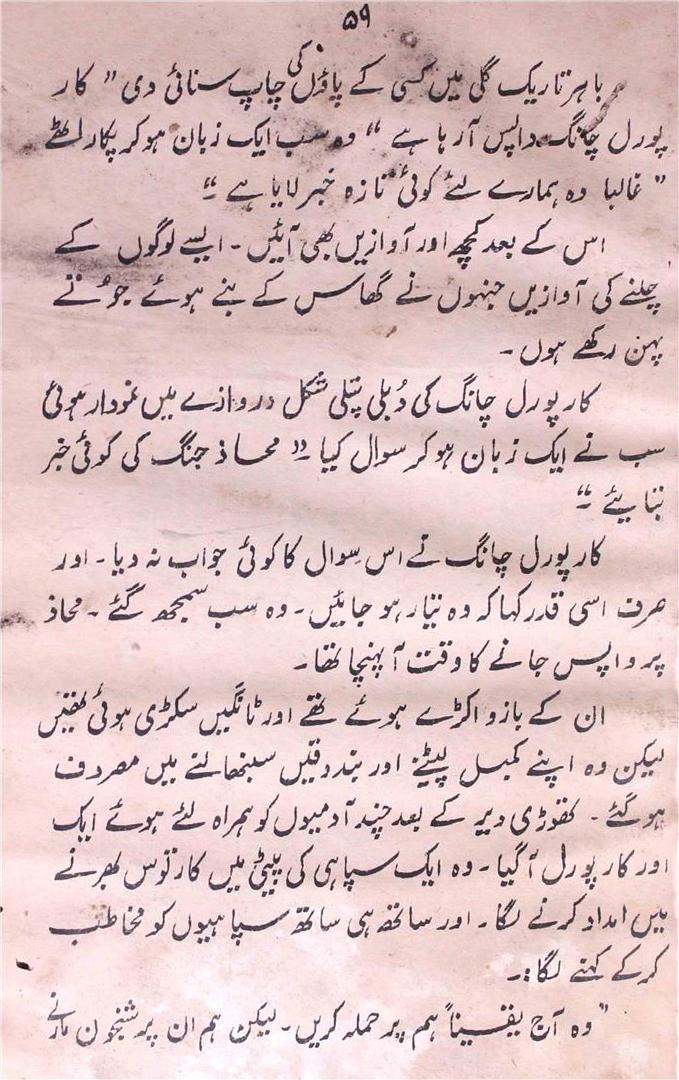 ۵۹
باہر تاریک گلی میں کسی کے پاؤں کی چاپ سنائی دی " کار
پورل چانگ واپس آ رہا ہے " وہ سب ایک زبان ہو کر پکار اٹھے
" غالبا وہ ہمارے لئے کوئی تازہ خبر لایا ہے ۔"
اس کے بعد کچھ اور آوازیں بھی آئیں ۔ ایسے لوگوں کے
چلنے کی آوازیں جنہوں نے گھاس کے بنے ہوئے جوُتے
پہن رکھے ہوں ۔
کارپورل چانگ کی دُبلی پتلی شکل دروازے میں نمودار ہوئی
سب نے ایک زبان ہو کر سوال کیا ۔" محاذ جنگ کی کوئی خبر
بتایئے ۔"
کارپورل چانگ نے اس سوال کا کوئی جواب نہ دیا ۔ اور
صرف اسی قدر کہا کہ وہ تیار ہو جائیں ۔ وہ سب سمجھ گئے ۔ محاذ
پر واپس جانے کا وقت آ پہنچا تھا ۔
ان کے بازو اکڑے ہوئے تھے اور ٹانگیں سکڑی ہوئی تھیں
لیکن وہ اپنے کمبل لپیٹنے اور بندوقیں سنبھالنے میں مصروف
ہو گئے ۔ تھوڑی دیر کے بعد چند آدمیوں کو ہمراہ لئے ہوئے ایک
اور کارپورل آ گیا ۔ وہ ایک سپاہی کی پیٹی میں کارتوس بھرنے
میں امداد کرنے لگا ۔ اور ساتھ ہی ساتھ سپاہیوں کو مخاطب
کرکے کہنے لگا :۔
" وہ آج یقیناً ہم پر حملہ کریں ۔ لیکن ہم ان پر شبخون مارنے